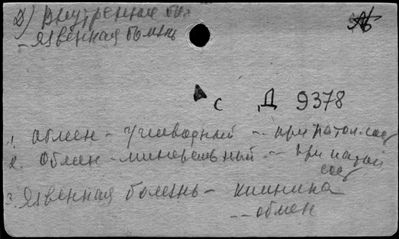 2) Внутренняя бол.
- Язвенная болезнь
С Д 9378
1. Обмен - углеводный -- при патол. сост
2. Обмен - минеральный -- при патол
сост
3. Язвенная болезнь - клиника
-- обмен